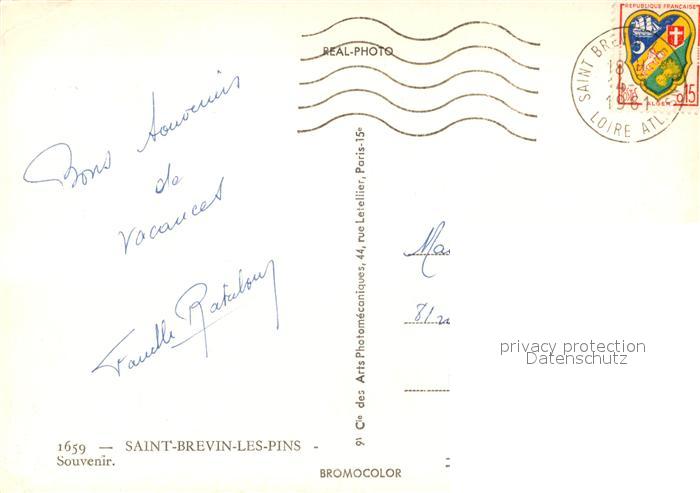 REAL-PHOTO
REPUBLIQUE FRANÇAISE
POSTES
0,15
ALGER
SAINT BRE
18
1961
LOIRE ATL.
Bons souvenirs
de
vacances
Famille
9, Cie des Arts Photomécaniques, 44, rue Letellier, Paris-15e
81
privacy protection
Datenschutz
1659 — SAINT-BREVIN-LES-PINS -
Souvenir.
BROMOCOLOR